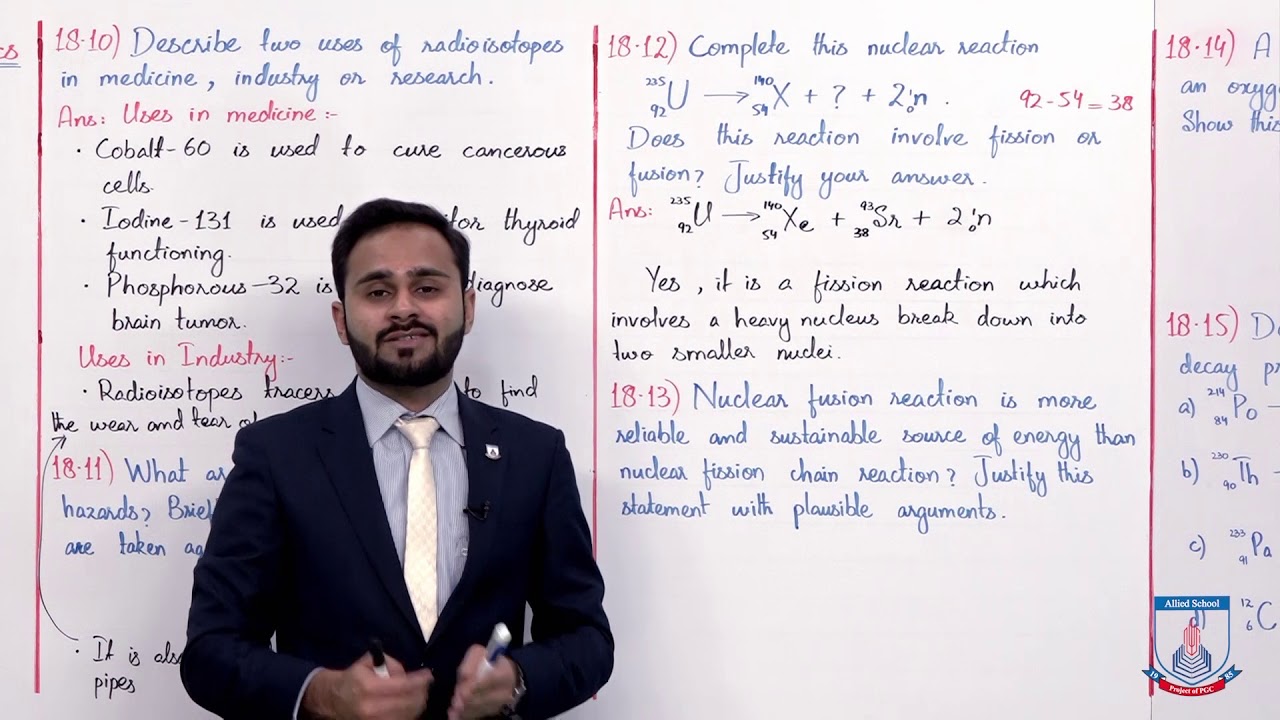 cs
18.10) Describe two uses of radioisotopes
in medicine, industry or research.
Ans: Uses in medicine:-
· Cobalt-60 is used to cure cancerous
cells.
· Iodine-131 is used thyroid
functioning.
· Phosphorous-32 is diagnose
brain tumor.
Uses in Industry:-
· Radioisotopes tracers to find
the wear and tear
18.11) What
hazards?
are taken
· It is
pipes
18.12) Complete this nuclear reaction
²³⁵₉₂U → ¹⁴⁰₅₄X + ? + 2¹₀n. 92-54=38
Does this reaction involve fission or
fusion? Justify your answer.
Ans: ²³⁵₉₂U → ¹⁴⁰₅₄Xe + ⁹³₃₈Sr + 2¹₀n
Yes, it is a fission reaction which
involves a heavy nucleus break down into
two smaller nuclei.
18.13) Nuclear fusion reaction is more
reliable and sustainable source of energy than
nuclear fission chain reaction? Justify this
statement with plausible arguments.
18.14) A
an
Show this
18.15)
decay
a) ²¹⁴₈₄Po
b) ²³⁰₉₀Th
c) ²³³₉₁Pa
d) ¹²₆C
Allied School
1985
Project of PGC